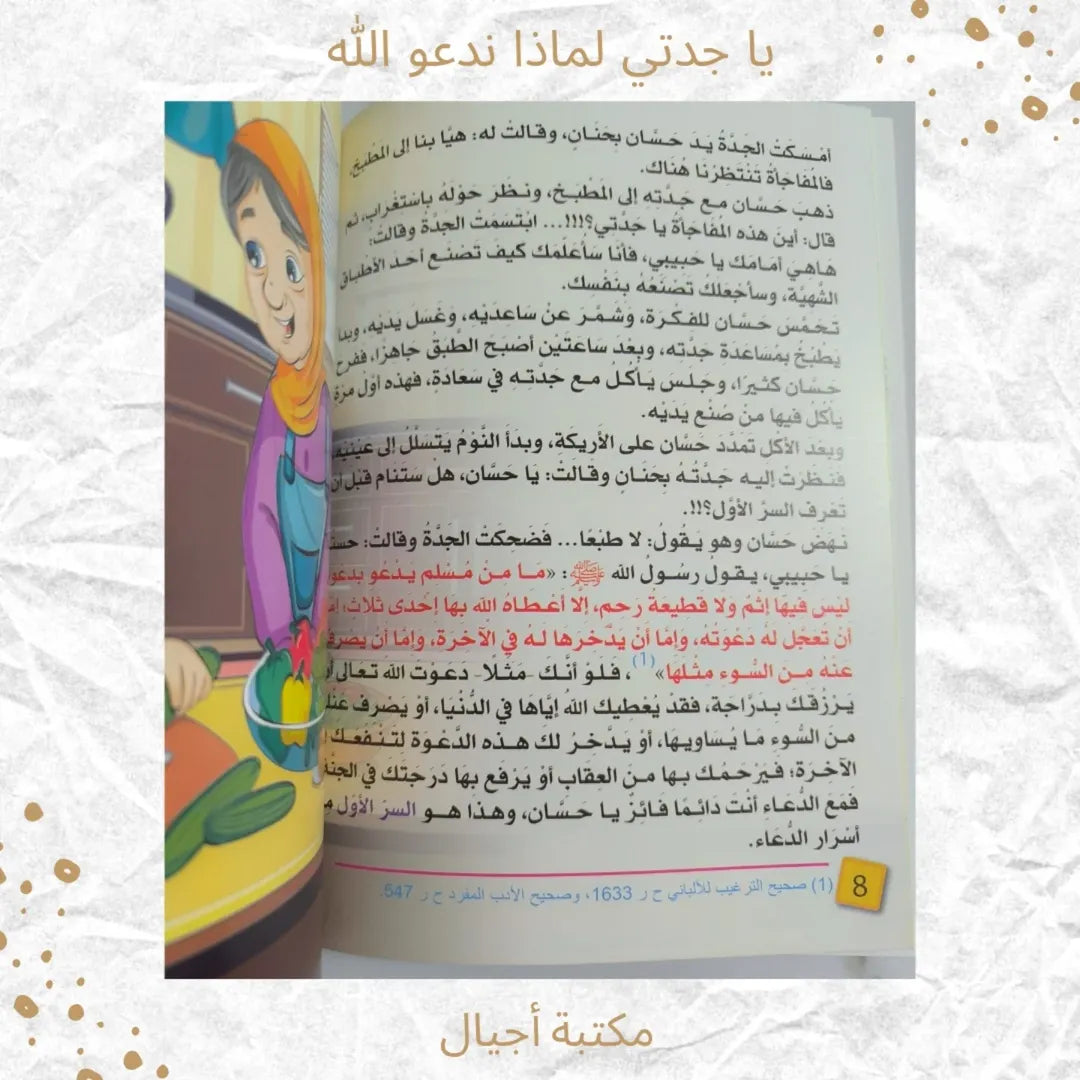 يا جدتي لماذا ندعو الله
أمْسَكَتْ الجَدَّةُ يَدَ حَسَّان بِحَنَانٍ، وقالتْ له: هيَّا بنا إلى المَطبَخ،
فالمُفاجَأةُ تَنْتَظِرُنَا هُنَاك.
ذهبَ حَسَّان مع جَدَّتِه إلى المَطْبَخ، ونظَرَ حَوْلَهُ باسْتغْراب، ثم
قال: أينَ هذه المُفَاجَأةُ يا جَدَّتي؟!!!... ابْتسَمَتْ الجدَّةُ وقالتْ:
هَاهيَ أمَامَك يا حَبيبي، فأنا سَأُعَلِّمَك كيفَ تَصْنَع أحدَ الأطْباق
الشَّهيَّة، وسأجْعَلُكَ تَصْنَعُهُ بنَفْسِك.
تحَمَّسَ حَسَّان للفِكْرَة، وَشَمَّرَ عنْ سَاعِدَيْهِ، وَغَسَلَ يَدَيْه، وبدأ
يَطْبُخُ بمُسَاعَدَةِ جَدَّتِه، وبعْدَ ساعَتَيْن أصْبَحَ الطَّبَقُ جاهزًا، ففرح
حَسَّان كَثيرًا، وجَلسَ يَأكُلُ مع جَدَّتِـه في سَعَادَة، فهذه أوَّل مرَة
يأكُل فيها منْ صُنْع يَدَيْه.
وبعْدَ الأكْل تمَدَّدَ حَسَّان على الأريكَة، وبدَأَ النَّوْمُ يَتَسَلَّلُ إلى عيْنيْه
فنَظرَتْ إليه جَدَّتُهُ بِحَنَانٍ وقالتْ: يا حَسَّان، هل ستنام قبْل أن
تَعْرفَ السرَّ الأوَّل؟!!.
نهَضَ حَسَّان وهو يَقُولُ: لا طبْعًا... فَضَحِكَتْ الجدَّةُ وقالتْ:
يا حَبيبي، يقولُ رسُولُ الله ﷺ: «مَا منْ مُسْلم يَدْعُو
ليْس فيها إثمٌ ولا قطيعَةُ رَحِمٍ، إلَّا أعْطاهُ الله بها إحْدى ثلاث:
أنْ تعَجَّل لهُ دعْوتُهُ، وإمَّا أن يَدَّخرَها لـهُ في الآخرَة، وإمَّا أن يصْرف
عنْهُ منَ السُّوء مثْلَهَا»(1)، فَلَوْ أنَّكَ -مَثَلًا- دعَوْتَ الله تعَالى
يَرْزُقَك بدَرَّاجَة، فقدْ يُعْطيك اللهُ إيَّاها في الدُّنْيا، أوْ يَصْرف
من السُّوء مَا يُسَاويهَا، أوْ يَدَّخرُ لك هذه الدَّعْوَة لتَنْفَعَك
الآخرَة؛ فيَرْحَمُك بها منَ العِقَاب أوْ يَرْفع بهَا دَرَجتَك في
فمَعَ الدُّعَاءِ أنْتَ دَائِمًا فَائِزٌ يا حَسَّان، وهَذا هـو السرّ الأول
أسْرَار الدُّعَاء.
(1) صحيح الترغيب للألباني ح ر 1633، وصحيح الأدب المفرد ح ر 547.
8
مكتبة أجيال